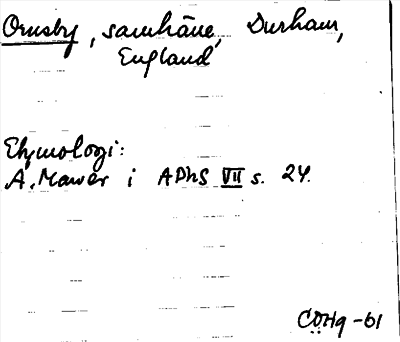 Ornsby, samhäne, Durham,
England
Etymologi:
A. Mawer i APhS VII s. 24.
CÖHg -61